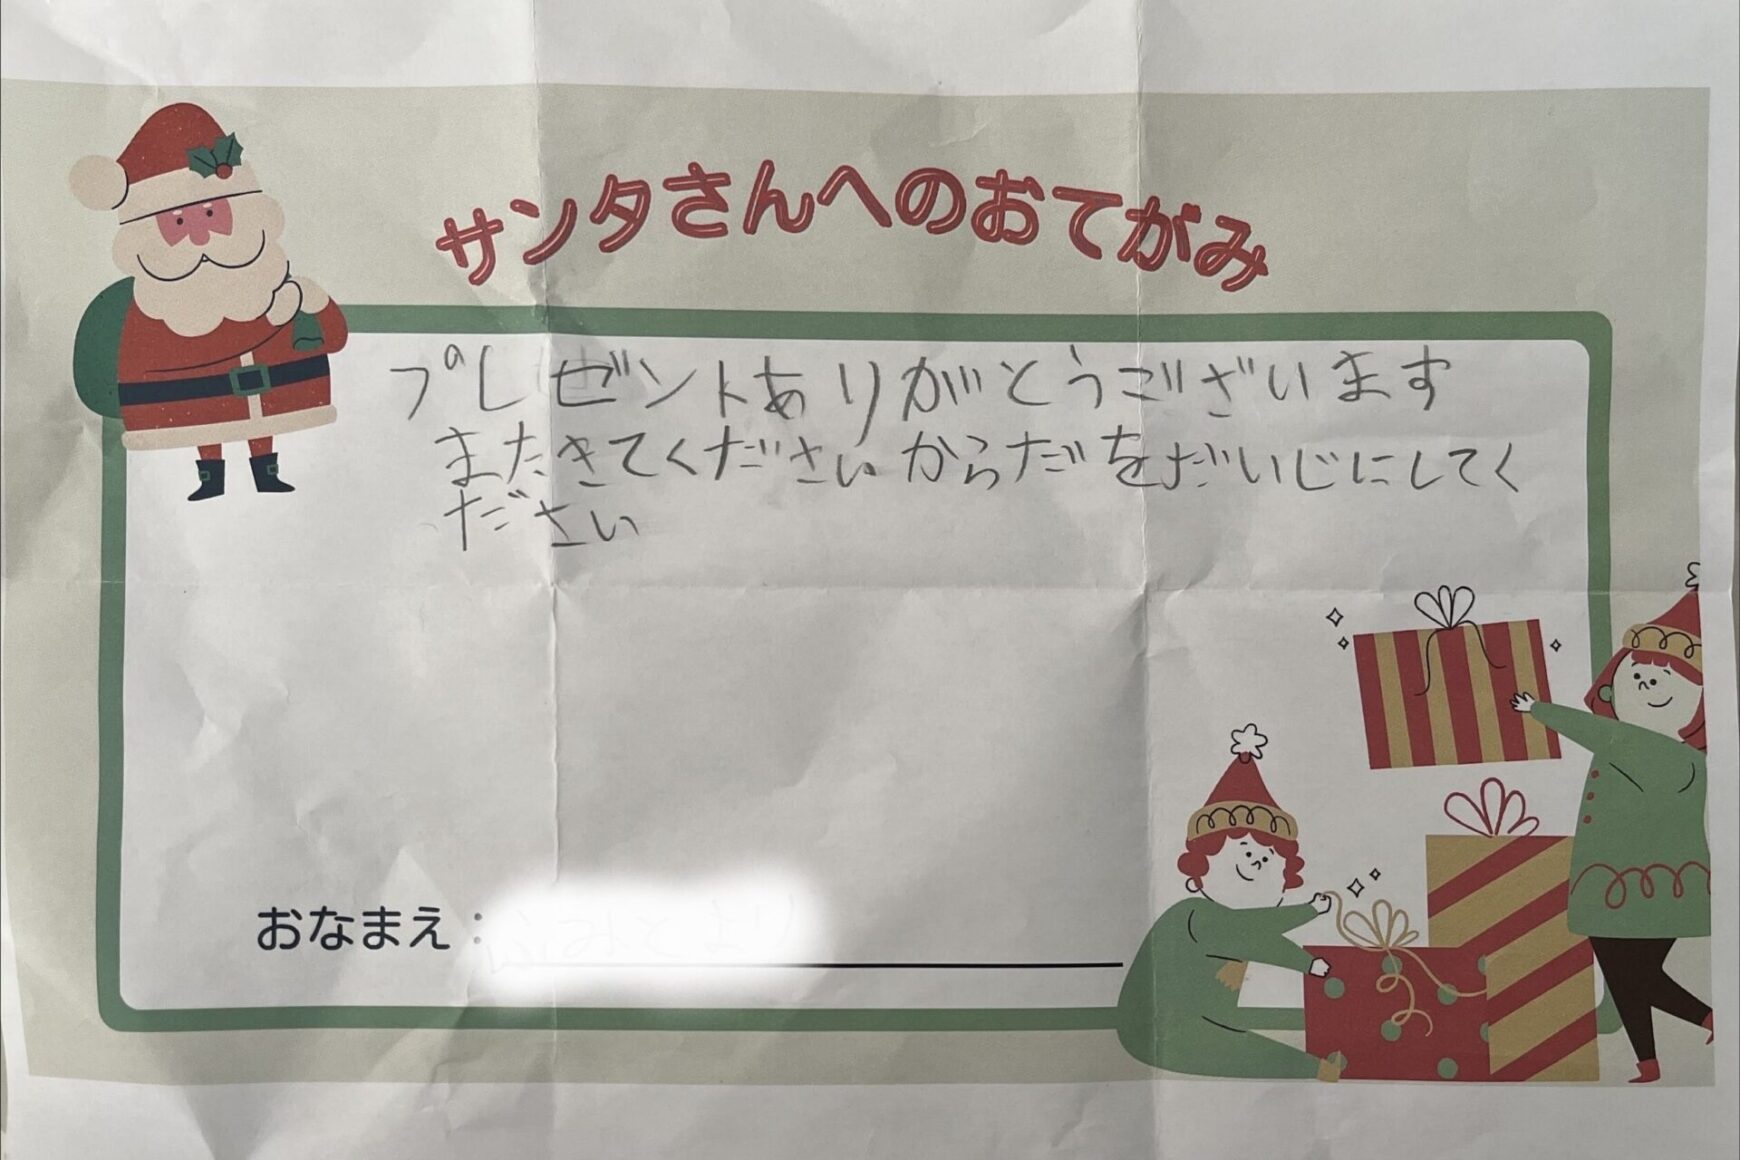 サンタさんへのおてがみ
プレゼントありがとうございます
またきてくださいからだをだいじにしてく
ださい
おなまえ：